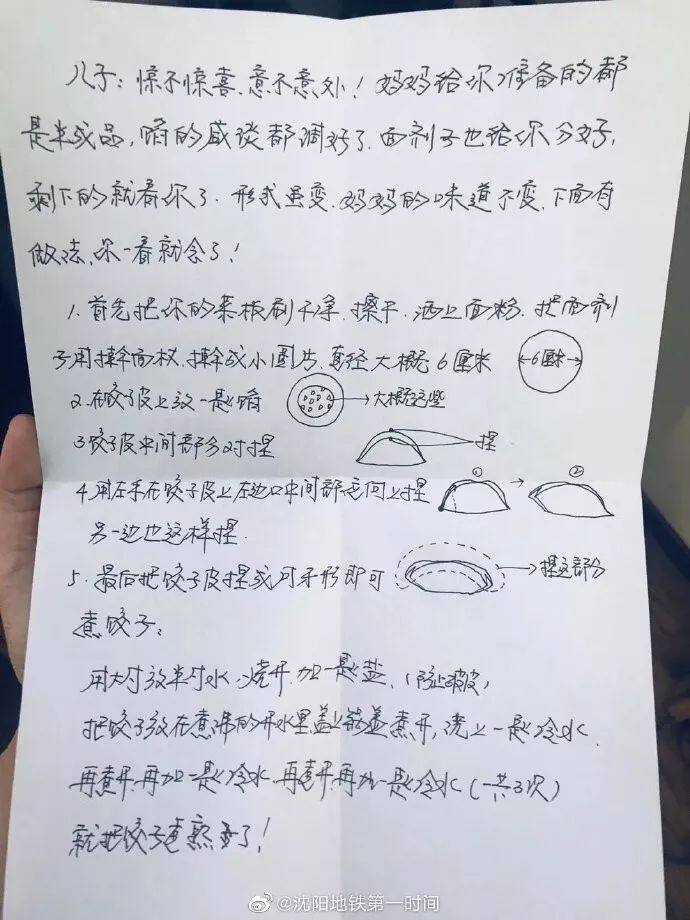 儿子：惊不惊喜、意不意外！妈妈给你准备的都
是半成品，馅的咸淡都调好了、面剂子也给你分好，
剩下的就看你了．形式虽变、妈妈的味道不变、下面有
做法、你一看就会了！
1、首先把你的菜板刷干净、擦干、洒上面粉、把面剂
子用擀面杖、擀成小圆片、直径大概6厘米
6厘米
2、在饺子皮上放一些馅
大概这些
3、饺子皮中间部分对捏
捏
4、用左手在饺子皮上左边口中间部位向上捏
① ②
另一边也这样捏．
5、最后把饺子皮捏成月牙形即可
捏这部分
煮饺子：
用大勺放半勺水、烧开、加一些盐、（防止破皮）
把饺子放在煮沸的开水里盖上锅盖煮开，浇上一些冷水、
再煮开、再加一些冷水、再煮开再加一些冷水（一共3次）
就把饺子煮熟了！
@沈阳地铁第一时间